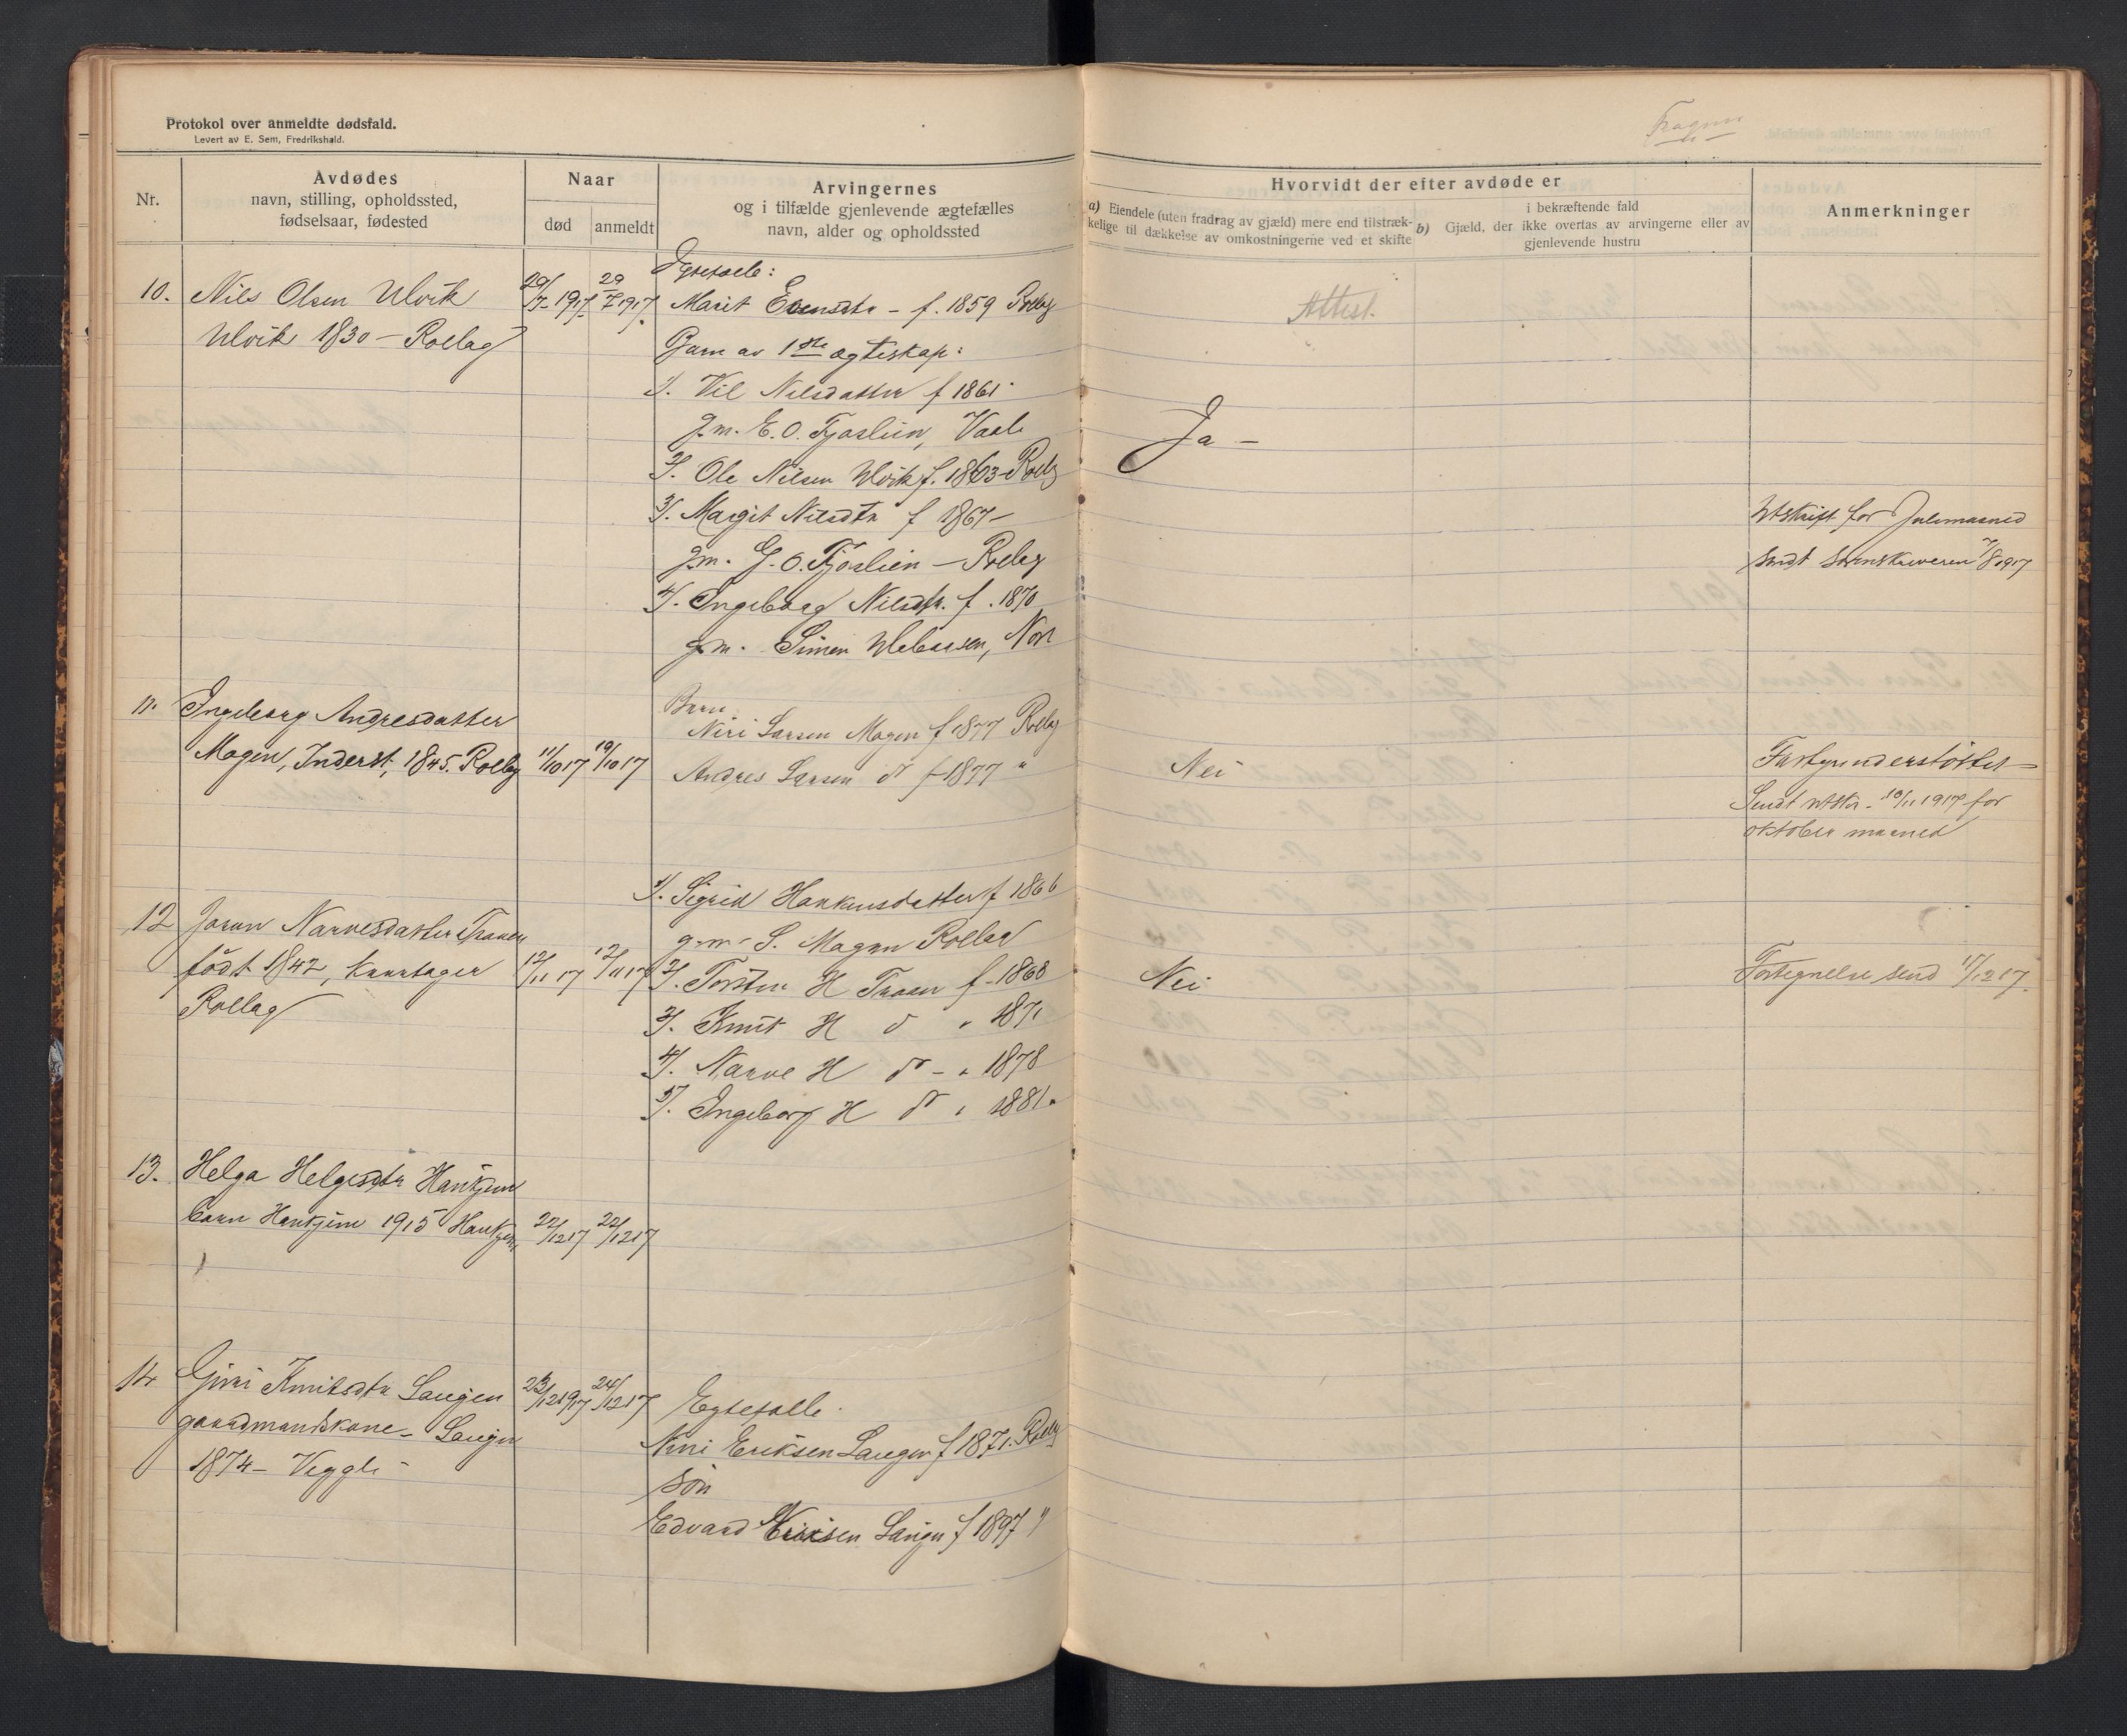 Protokol over anmeldte dødsfald.
Levert av E. Sem, Fredrikshald.
Nr.
Avdødes
navn, stilling, opholdssted,
fødselsaar, fødested
Naar
død
anmeldt
Arvingernes
og i tilfælde gjenlevende ægtefælles
navn, alder og opholdssted
Hvorvidt der efter avdøde er
a) Eiendele (uten fradrag av gjæld) mere end tilstræk-
kelige til dækkelse av omkostningerne ved et skifte
i bekræftende fald
b) Gjæld, der ikke overtas av arvingerne eller av
gjenlevende hustru
Anmerkninger
10. Nils Olsen Ulvik
Ulvik 1830 - Rollag
20/7 1917. 29/7 1917.
Marit Evensdtr - f. 1859 Rollag
Barn av 1ste ægteskap:
1/. Nilsdatter f 1861
g.m. E. O. Fjøslien,
2/. Ole Nilsen Ulvik f. 1863 - Rollag
3/. Margit Nilsdtr f 1867 -
g.m. G. O. Fjøslien - Rollag
4/. Ingeborg Nilsdtr. f. 1870
g.m. Simen
Attest.
Ja -
Utskrift for Julimaaned
sendt sorenskriveren 7/8 1917
11. Ingeborg Andresdatter
Mogen, Inderst, 1845. Rollag
11/10 17 19/10 17
Barn
Niri Larsen Mogen f 1877 Rollag
Andres Larsen do f 1877 "
Nei
Fattigunderstøttet
Sendt utskr. 10/11 1917 for
oktober maaned
12 Joran Narvesdatter Traaen
født 1842, kaartager
Rollag
12/11 17 12/11 17
1/. Sigrid Haakensdatter f 1866
g.m. S. Mogen Rollag
2/. Torsten H Traaen f - 1868
3/. Knut H do " 1871
4/. Narve H do - " 1878
5/. Ingeborg H do " 1881.
Nei
Fortegnelse send 17/12 17.
13. Helga Helgesdtr Haukjem
barn Haukjem 1915 Haukjem
22/12 17 22/12 17
14 Guri Knutsdtr Laugen
gaardmandskone - Laugen
1874 - Veggli -
23/12 1917 24/12 17
Egtefælle.
Niri Eriksen Laugen f 1871. Rollag
søn
Edvard Nirisen Laugen f 1897 "